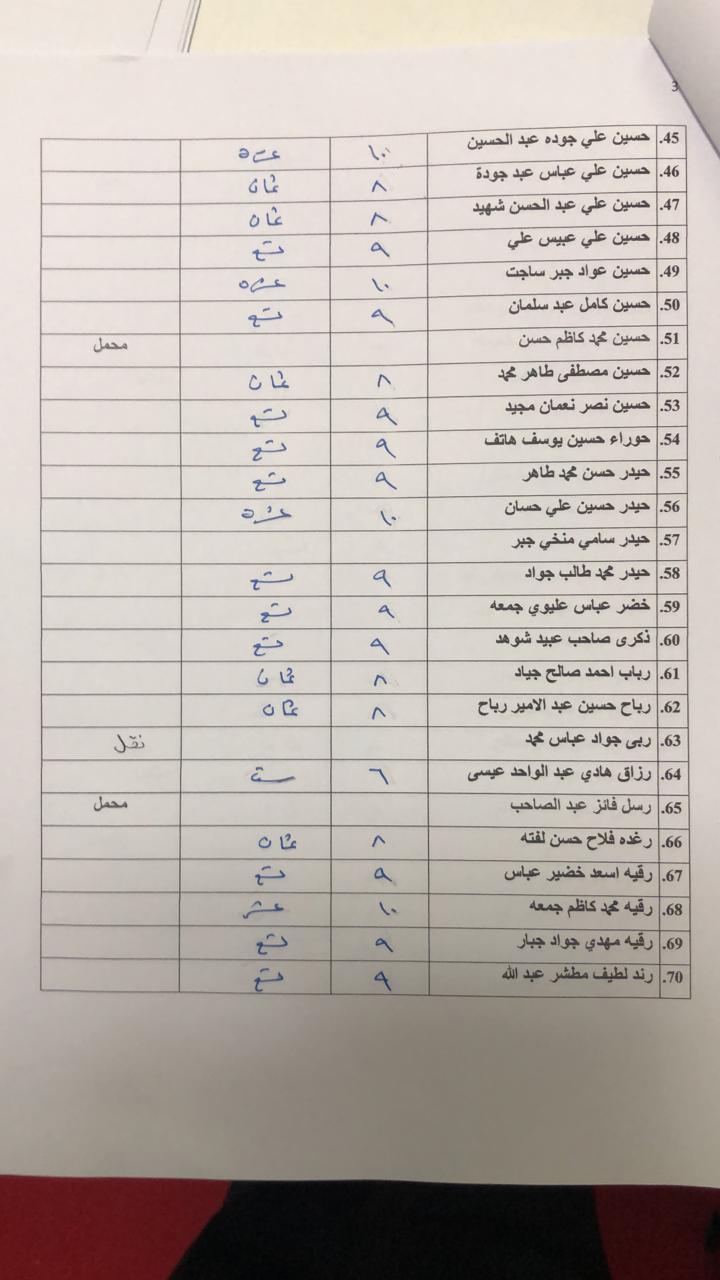 3
45. حسين علي جوده عبد الحسين ١٠ عشرة
46. حسين علي عباس عبد جودة ٨ ثمان
47. حسين علي عبد الحسن شهيد ٨ ثمان
48. حسين علي عبيس علي ٩ تسع
49. حسين عواد جبر ساجت ١٠ عشره
50. حسين كامل عبد سلمان ٩ تسع
51. حسين محمد كاظم حسن محمل
52. حسين مصطفى طاهر محمد ٨ ثمان
53. حسين نصر نعمان مجيد ٩ تسع
54. حوراء حسين يوسف هاتف ٩ تسع
55. حيدر حسن محمد طاهر ٩ تسع
56. حيدر حسين علي حسان ١٠ عشرة
57. حيدر سامي منخي جبر
58. حيدر محمد طالب جواد ٩ تسع
59. خضر عباس عليوي جمعه ٩ تسع
60. ذكرى صاحب عبيد شوهد ٩ تسع
61. رباب احمد صالح جياد ٨ ثمان
62. رباح حسين عبد الامير رباح ٨ ثمان
63. ربى جواد عباس محمد نقل
64. رزاق هادي عبد الواحد عيسى ٦ ست
65. رسل فائز عبد الصاحب محمل
66. رغده فلاح حسن لفته ٨ ثمان
67. رقيه اسعد خضير عباس ٩ تسع
68. رقيه محمد كاظم جمعه ١٠ عشر
69. رقيه مهدي جواد جبار ٩ تسع
70. رند لطيف مطشر عبد الله ٩ تسع